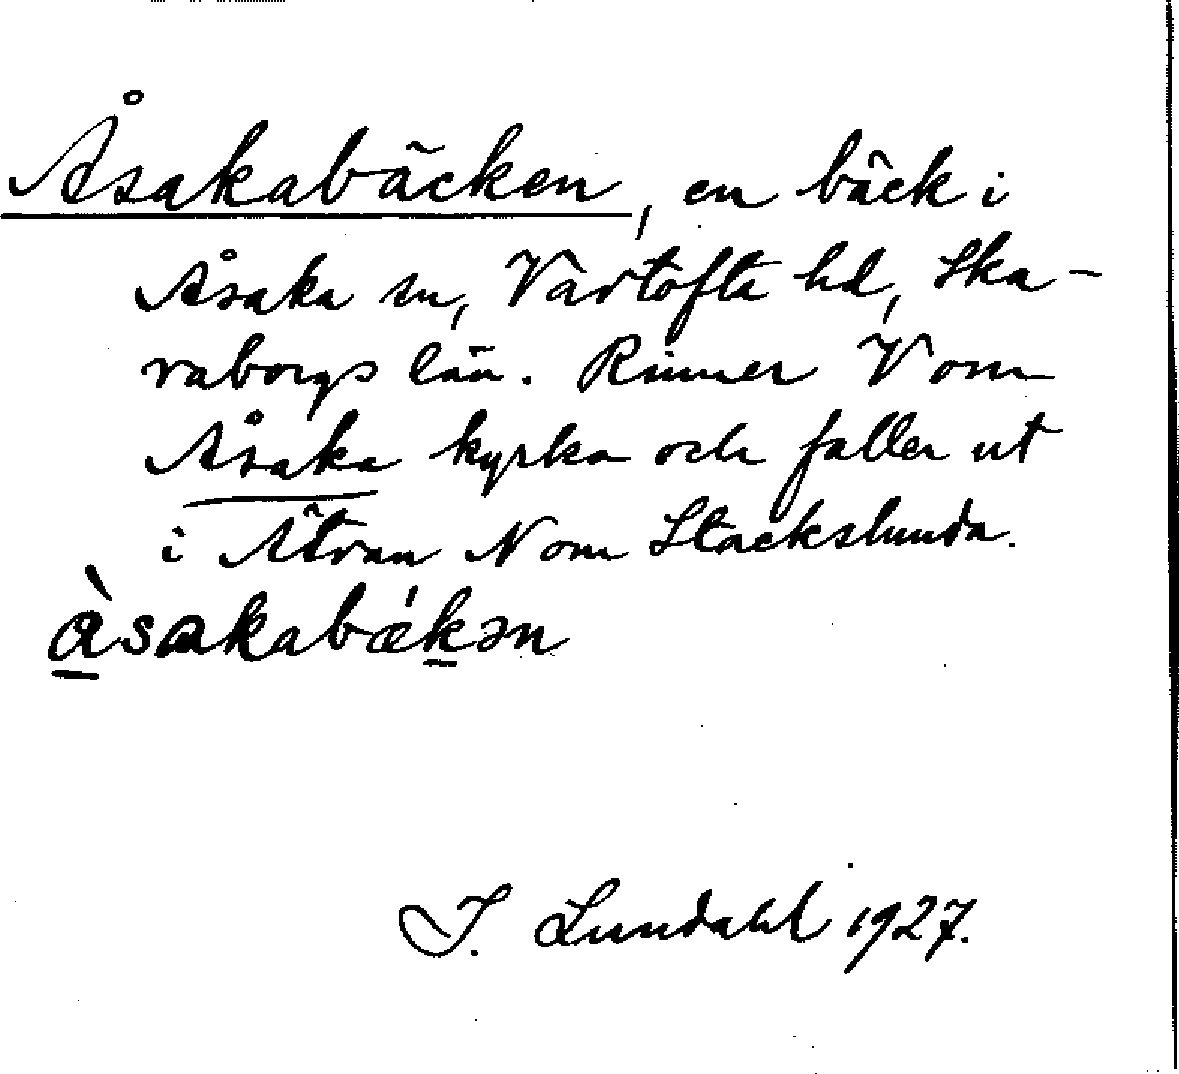 Åsakabäcken, en bäck i
Åsaka sn, Vartofta hd, Ska-
raborgs län. Rinner V om
Åsaka kyrka och faller ut
i Ätran N om Stackslunda.
ɑ̀sakabǽkən
I. Lundahl 1927.